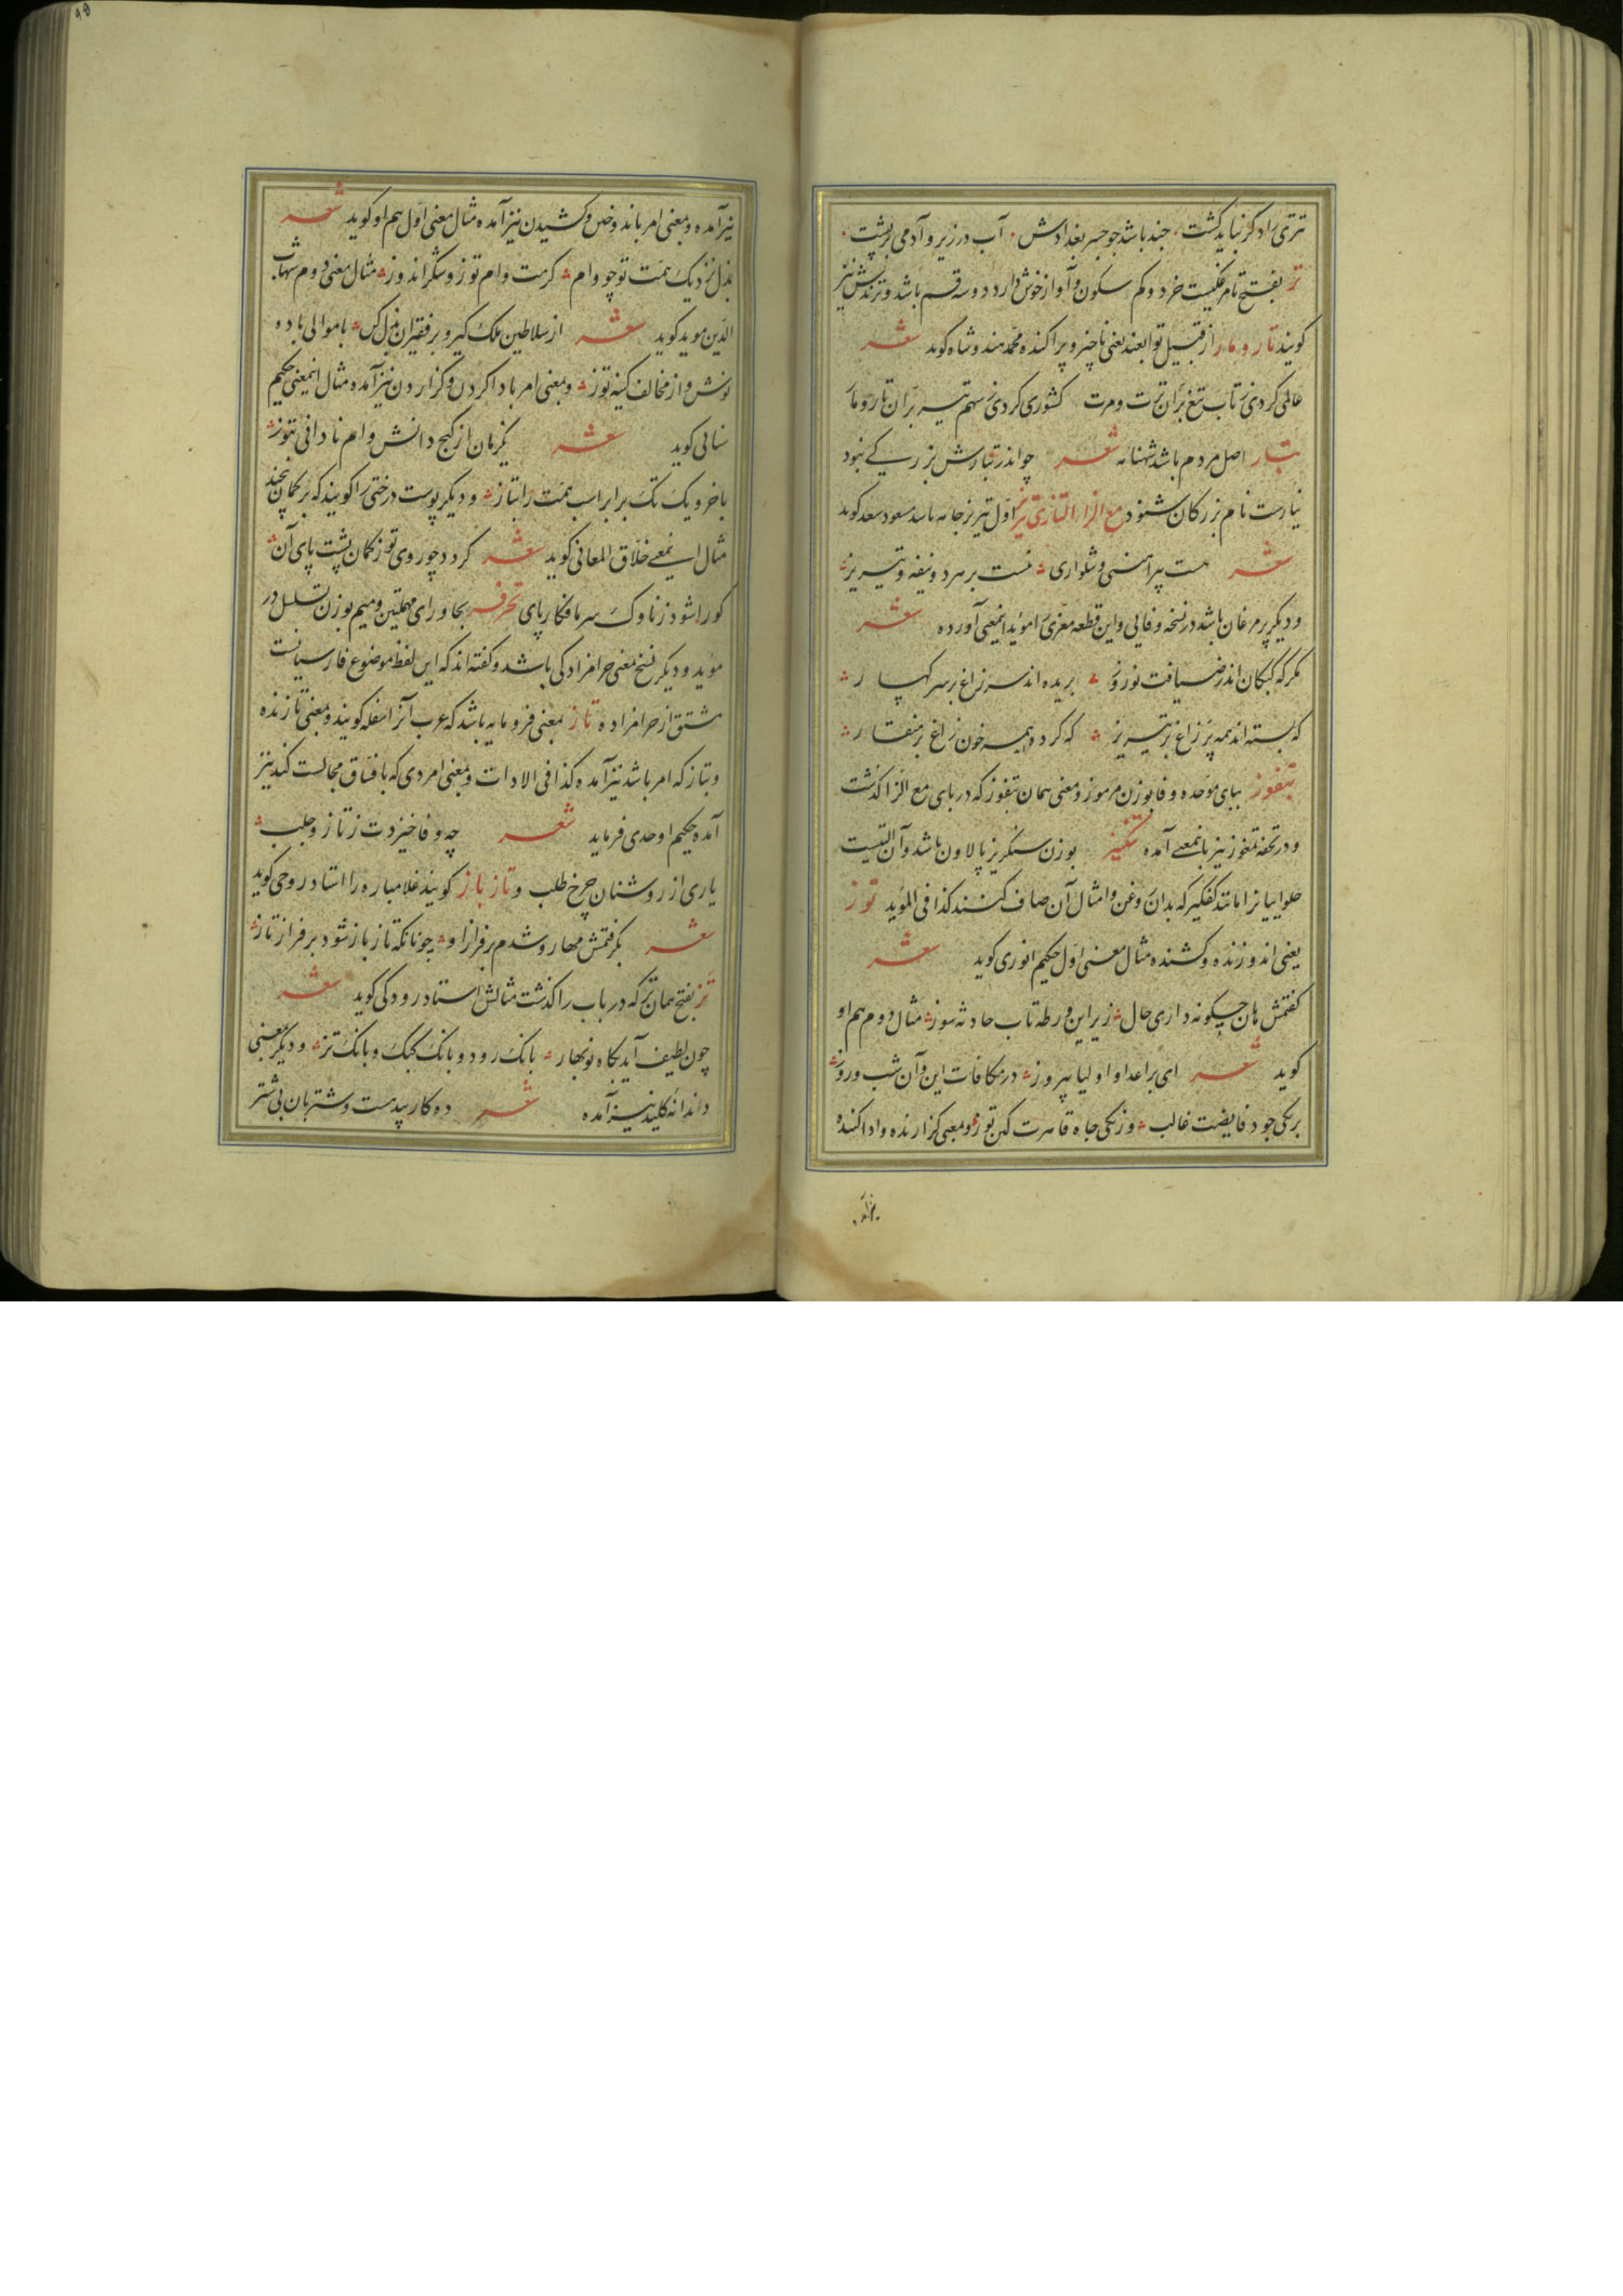 تتری را د کر نباید کشت جند باشد جو جسر بغدادش آب در زیر و آدمی بر پشت
تز بفتح تا مرغکیست خرد و کم سکون و آواز خوش دارد دو سه قسم باشد و ترندش نیز
کویند تار و مار از قبیل توابعند یعنی ناچیز و پراکنده محمد هندوشاه کوید شعر
عالمی کردی ز تاب تیغ بران ترت و مرت کشوری کردی ز سهم تیر بران تار و مار
تبار اصل مردم باشد شهنامه شعر چو اندر تبارش بزرکی نبود
نیارست نام بزرکان شنود مع الزاء التازی تیریز اول تیریز جامه باشد مسعود سعد کوید
شعر هست پیراهنی و شلواری نیست بر هر دو نیفه و تیریز
و دیکر پر مرغان باشد در نسخه وفایی و این قطعه معزی را مؤید اینمعنی آورده شعر
مکر که کبکان اندر ضیافت نوروز بریده اند سر زاغ بر سر کهسار
که بسته اند همه پر زاغ بر تیریز که کرد همه خون زاغ بر منقار
تبفوز ببای موحده و فا بوزن مرموز و معنی همان بتفوز که در بای مع الزا کذشت
و در تحفه تبغوز نیز باینمعنی آمده تنکبیز بوزن سنکریز پالاون باشد و آن آلتیست
حلواییانرا مانند کفکیر که بدان روغن و امثال آن صاف کنند کذا فی المؤید توز
یعنی اندوزنده و کشنده مثال معنی اول حکیم انوری کوید شعر
کفتمش هان چکونه داری حال زیر این ورطه تاب حادثه سوز مثال دوم هم او
کوید شعر ای بر اعدا و اولیا پیروز در مکافات این و آن شب و روز
بر یکی جود فایضت غالب وز یکی جاه قاهرت کین توز و بمعنی کزارنده و ادا کننده
نیز آمده
نیز آمده و بمعنی امر باندوختن و کشیدن نیز آمده مثال معنی اول هم او کوید شعر
بذل نزدیک همت تو چو وام کرمت وام توز و شکر اندوز مثال معنی دوم شهاب
الدین موید کوید شعر از سلاطین ملک کیر و بر فقیران بذل کن با موالی باده
نوش و از مخالف کینه توز و بمعنی امر باداکردن و کزاردن نیز آمده مثال اینمعنی حکیم
سنایی کوید شعر یکزمان از کنج دانش وام نادانی بتوز
باخر و یک تک برابر اسب همت را بتاز و دیکر پوست درختی را کویند که بر کمان پیچند
مثال اینمعنی خلاق المعانی کوید شعر کردد چو روی توز کمان پشت پای آن
کورا شود ز ناوک سرما فکار پای تحرمز بحا و رای مهملتین و میم بوزن تسلسل در
مؤید و دیکر نسخ بمعنی حرامزادکی باشد و کفته اند که این لفظ موضوع فارسیانست
مشتق از حرامزاده تاز بمعنی فرومایه باشد که عرب آنرا سفله کویند و بمعنی تازنده
و بتاز که امر باشد نیز آمده کذا فی الادات و بمعنی امردی که با فساق مجالست کند نیز
آمده حکیم اوحدی فرماید شعر چه وفا خیزدت ز تاز و جلب
یاری از روشنان چرخ طلب و تاز باز کویند غلامباره را استاد روحی کوید
شعر بکرفتمش مهار و شدم بر فراز او چونانکه تاز باز شود بر فراز تاز
تز بفتح همان تر که در باب را کذشت مثالش استاد رودکی کوید شعر
چون لطیف آید بکاه نوبهار بانک رود و بانک کبک و بانک تز و دیکر بمعنی
دندانه کلید نیز آمده شعر ده کار پیدست و شتربان بی شتر